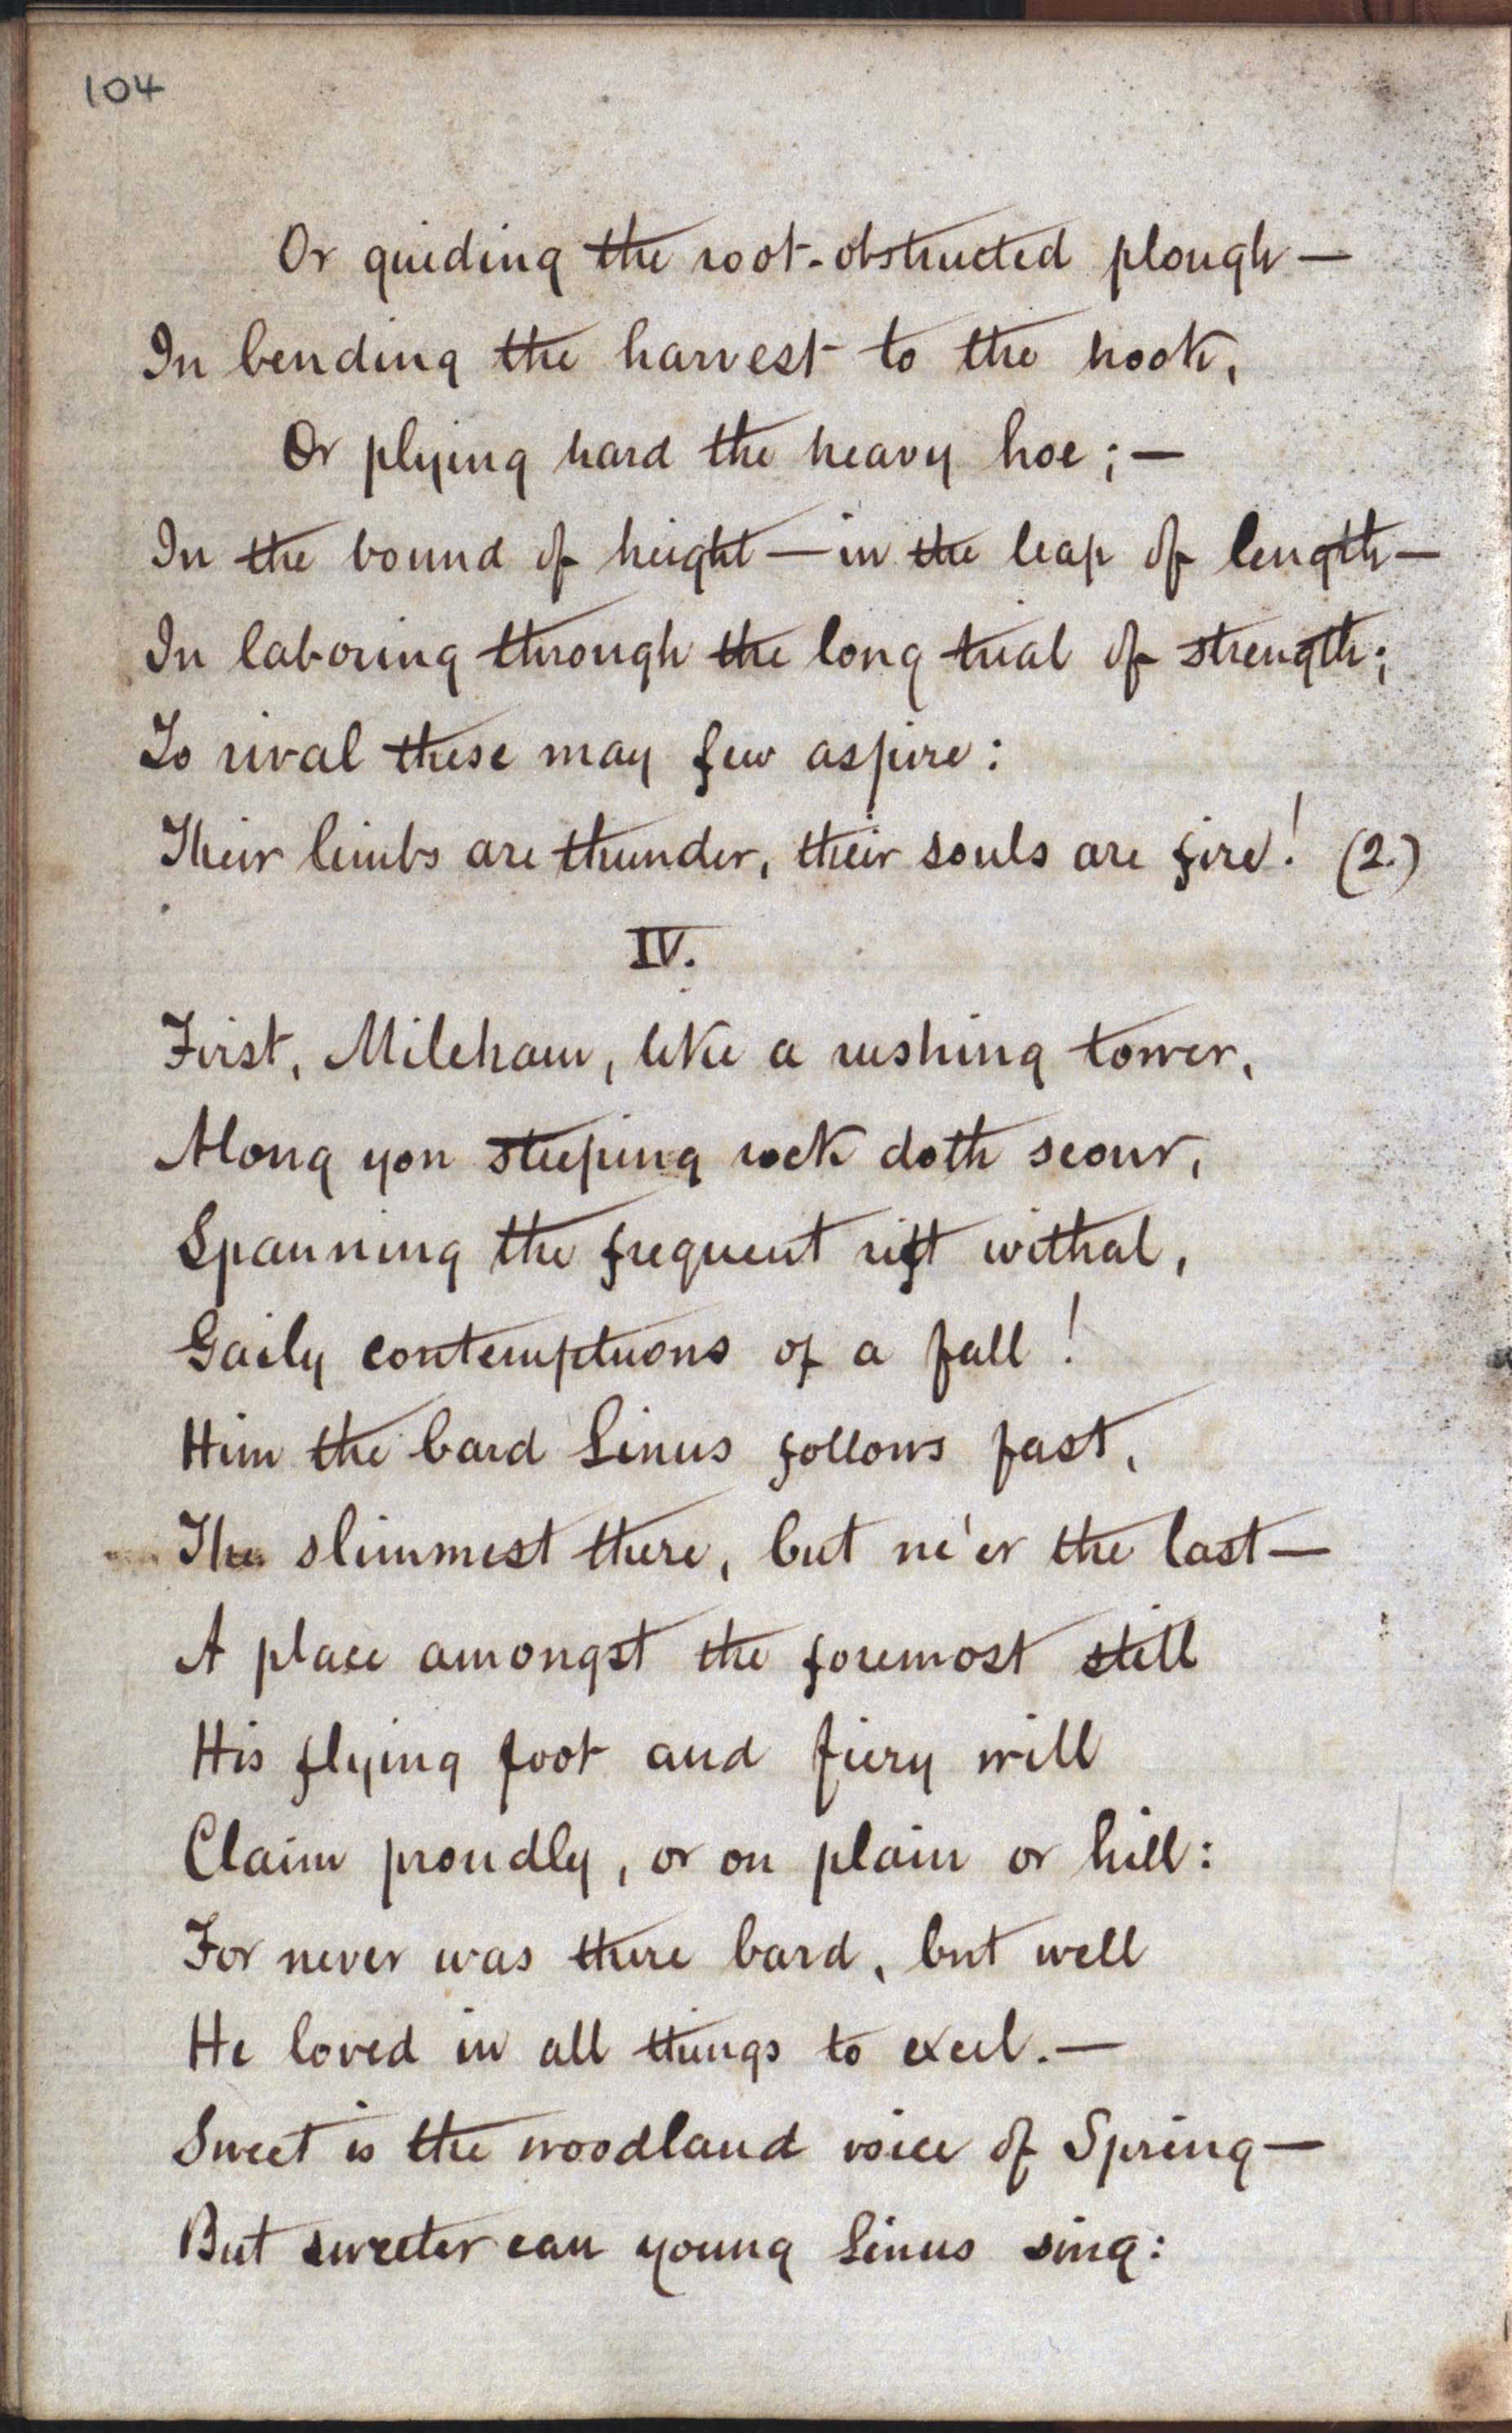 104
Or guiding the root-obstructed plough—
In bending the harvest to the hook,
Or plying hard the heavy hoe;—
In the bound of height—in the leap of length—
In laboring through the long trial of strength;
To rival these may few aspire:
Their limbs are thunder, their souls are fire! (2.)
IV.
First, Mileham, like a rushing tower,
Along yon steeping rock doth scour,
Spanning the frequent rift withal,
Gaily contemptuous of a fall!
Him the bard Linus follows fast,
The slimmest there, but ne'er the last—
A place amongst the foremost still
His flying foot and fiery will
Claim proudly, or on plain or hill:
For never was there bard, but well
He loved in all things to excel.—
Sweet is the woodland voice of Spring—
But sweeter can young Linus sing: